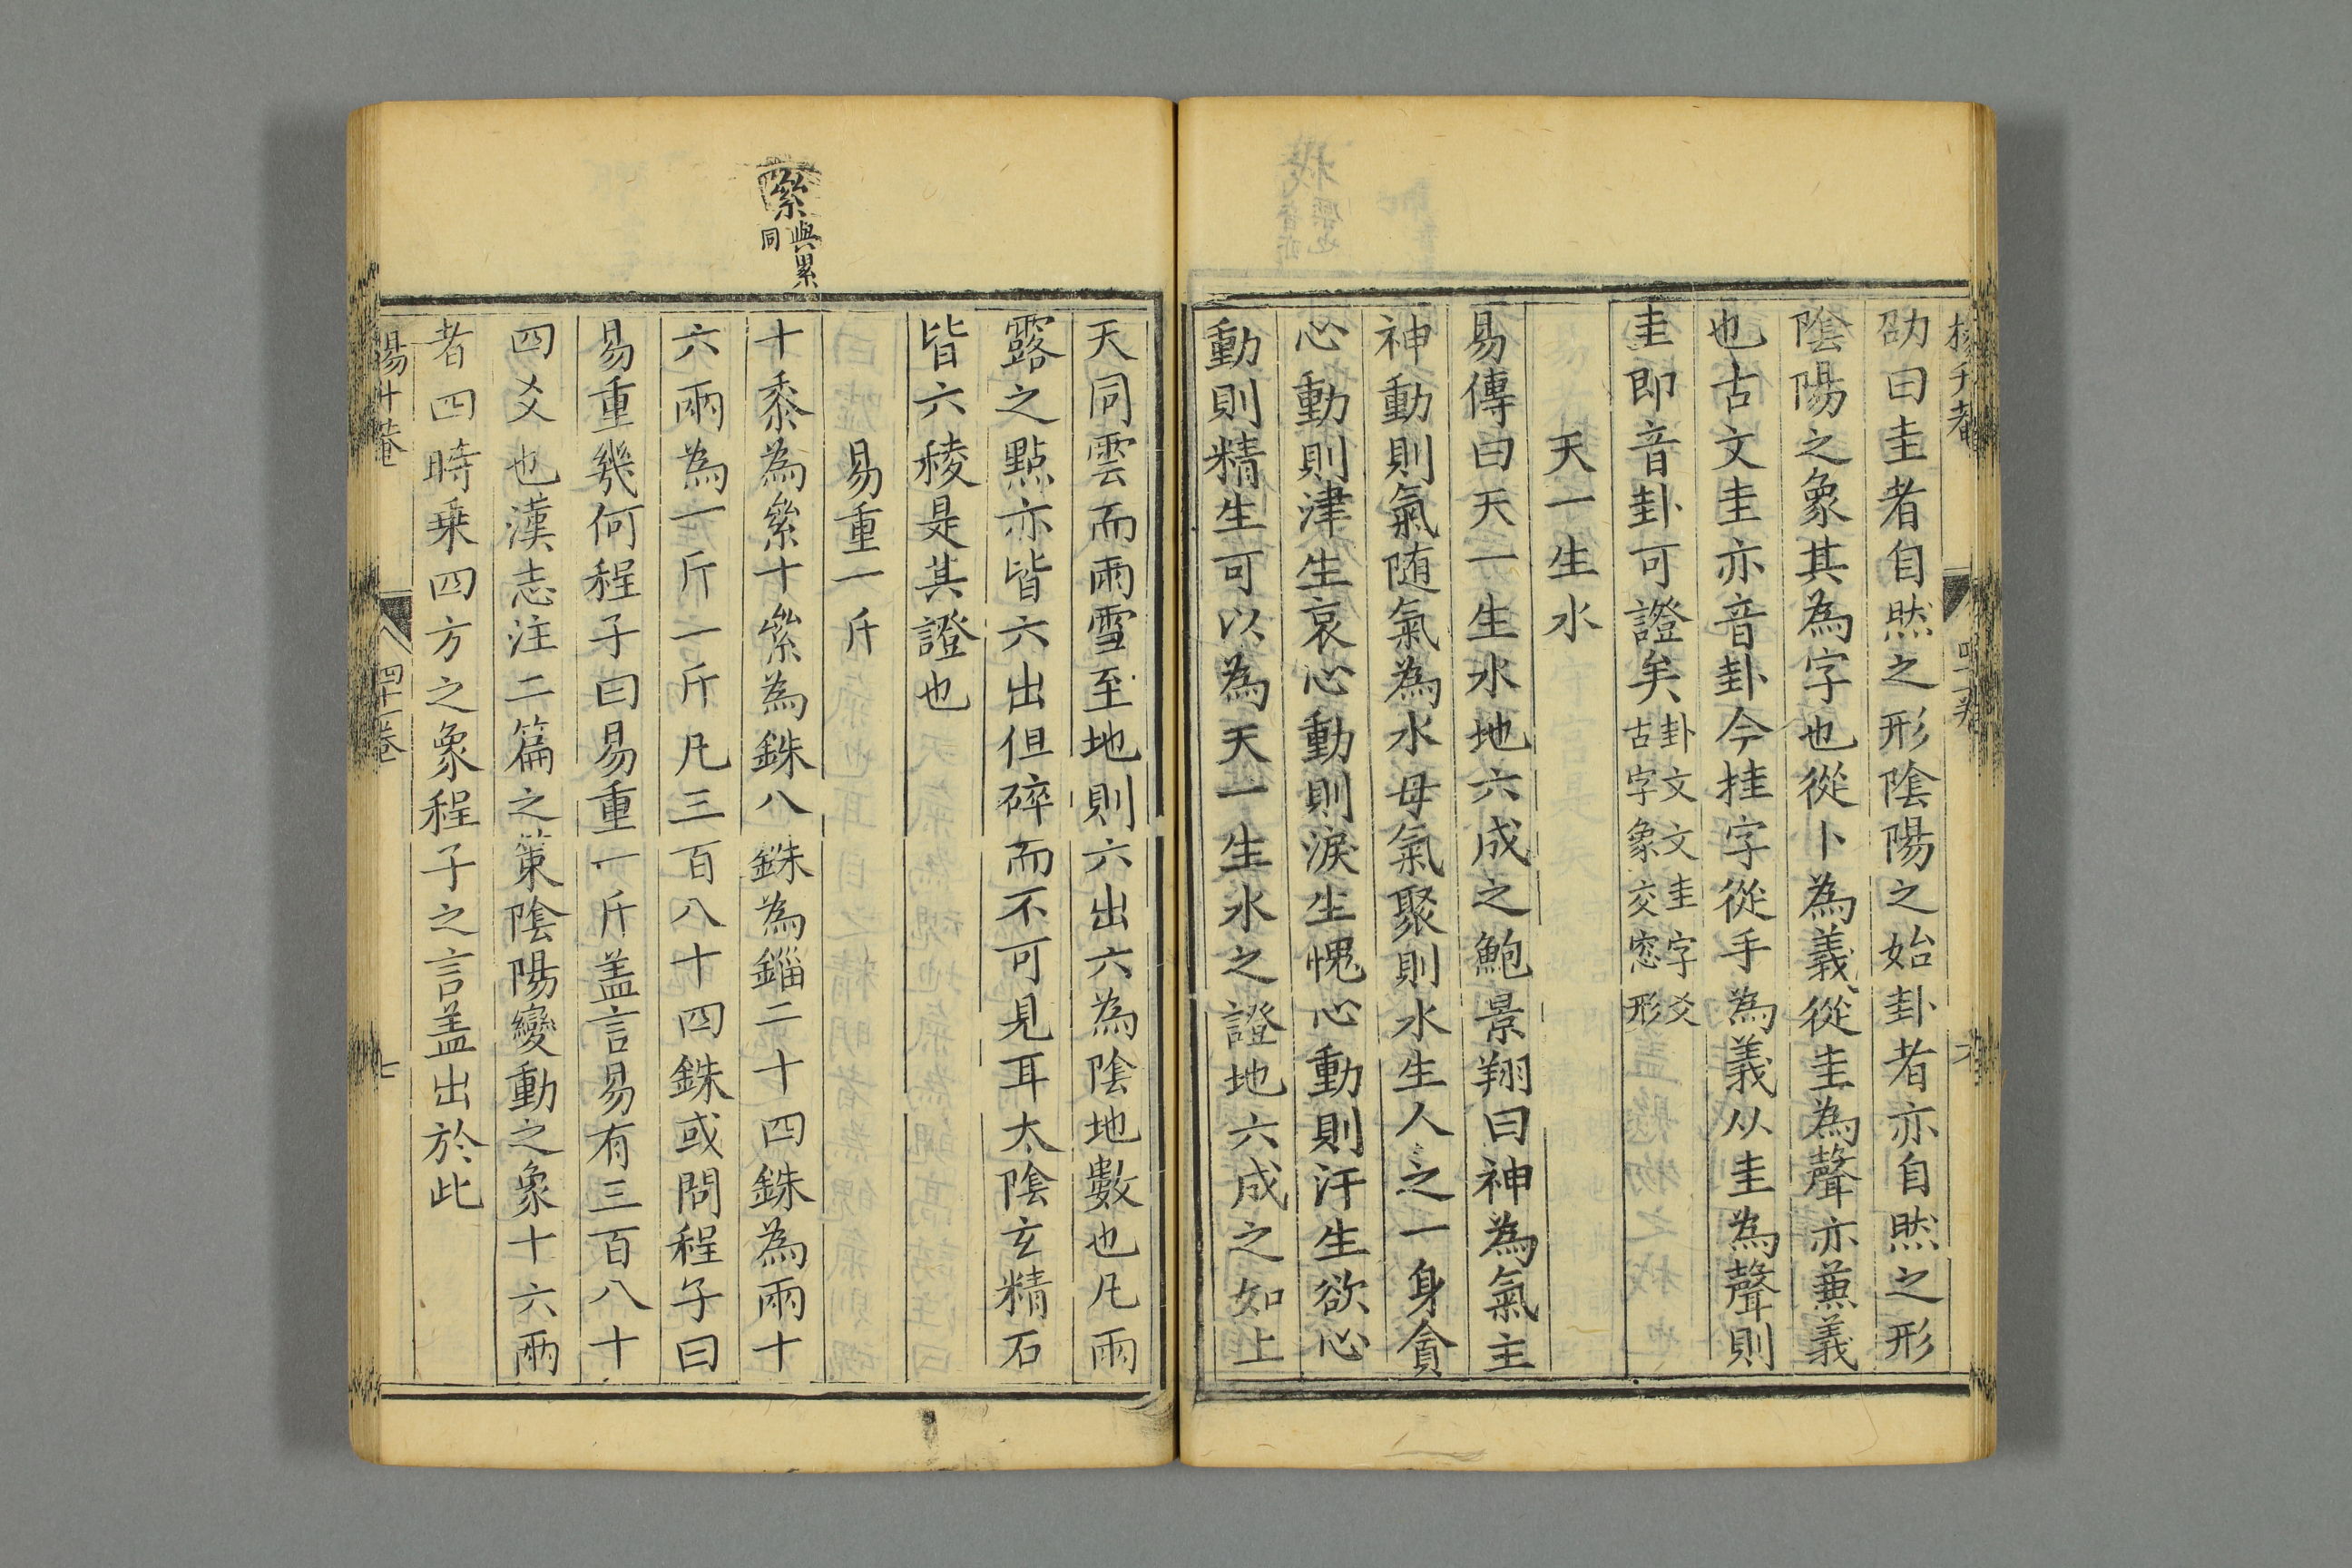 劭曰圭者自然之形陰陽之始卦者亦自然之形
陰陽之象其為字也從卜為義從圭為聲亦蒹義
也古文圭亦音卦今挂字從手為義从圭為聲則
圭即音卦可證矣卦文文圭字爻
古字象交窓形
天一生水
易傳曰天一生水地六成之鮑景翔曰神為氣主
神動則氣随氣為水母氣聚則水生人之一身貪
心動則津生哀心動則淚生愧心動則汗生欲心
動則精生可以為天一生水之證地六成之如上
天同雲而雨雪至地則六出六為陰地數也凡雨
露之點亦皆六出但碎而不可見耳太陰玄精石
皆六稜是其證也
易重一斤
絫與累
同
十黍為絫十絫為銖八銖為錙二十四銖為兩十
六兩為一斤一斤凡三百八十四銖或問程子曰
易重幾何程子曰易重一斤盖言易有三百八十
四爻也漢志注二篇之策陰陽變動之象十六兩
者四時乗四方之象程子之言盖出於此
四十一卷
七